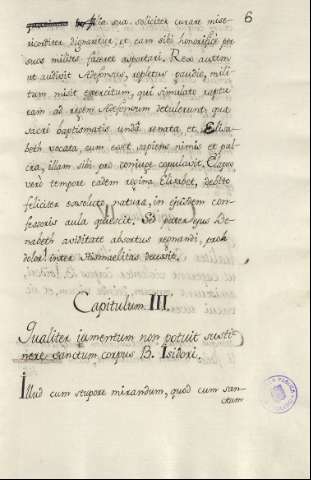 6
filia sua soliciter curare mise-
ricorditer dignaretur, et eam sibi honorificè per
suos milites faceret aportari. Rex autem
ut audivit Adefonsus, repletus gaudio, mili-
tum misit exercitum, qui simulato raptu
eam ad regem Adefonsum detulerunt quæ
sacri baptismatis unda renata, et Elisa-
beth vocata, cum esset sapiens nimis et pul-
cra, illam sibi pro conjuge copulavit. Elapso
verò tempore eadem regina Elizabet, debito
feliciter exsoluto natura, in ejusdem con-
fessoris aula quiescit. Sed pater ejus Be-
nabeth aviditate absortus regnandi, proh
dolor! inter Ismaelitas decessit.
Capitulum III.
Qualiter iumentum non potuit susti-
nere sanctum corpus B. Isidori.
Illud cum stupore mirandum, quod cum sanc-
ctum